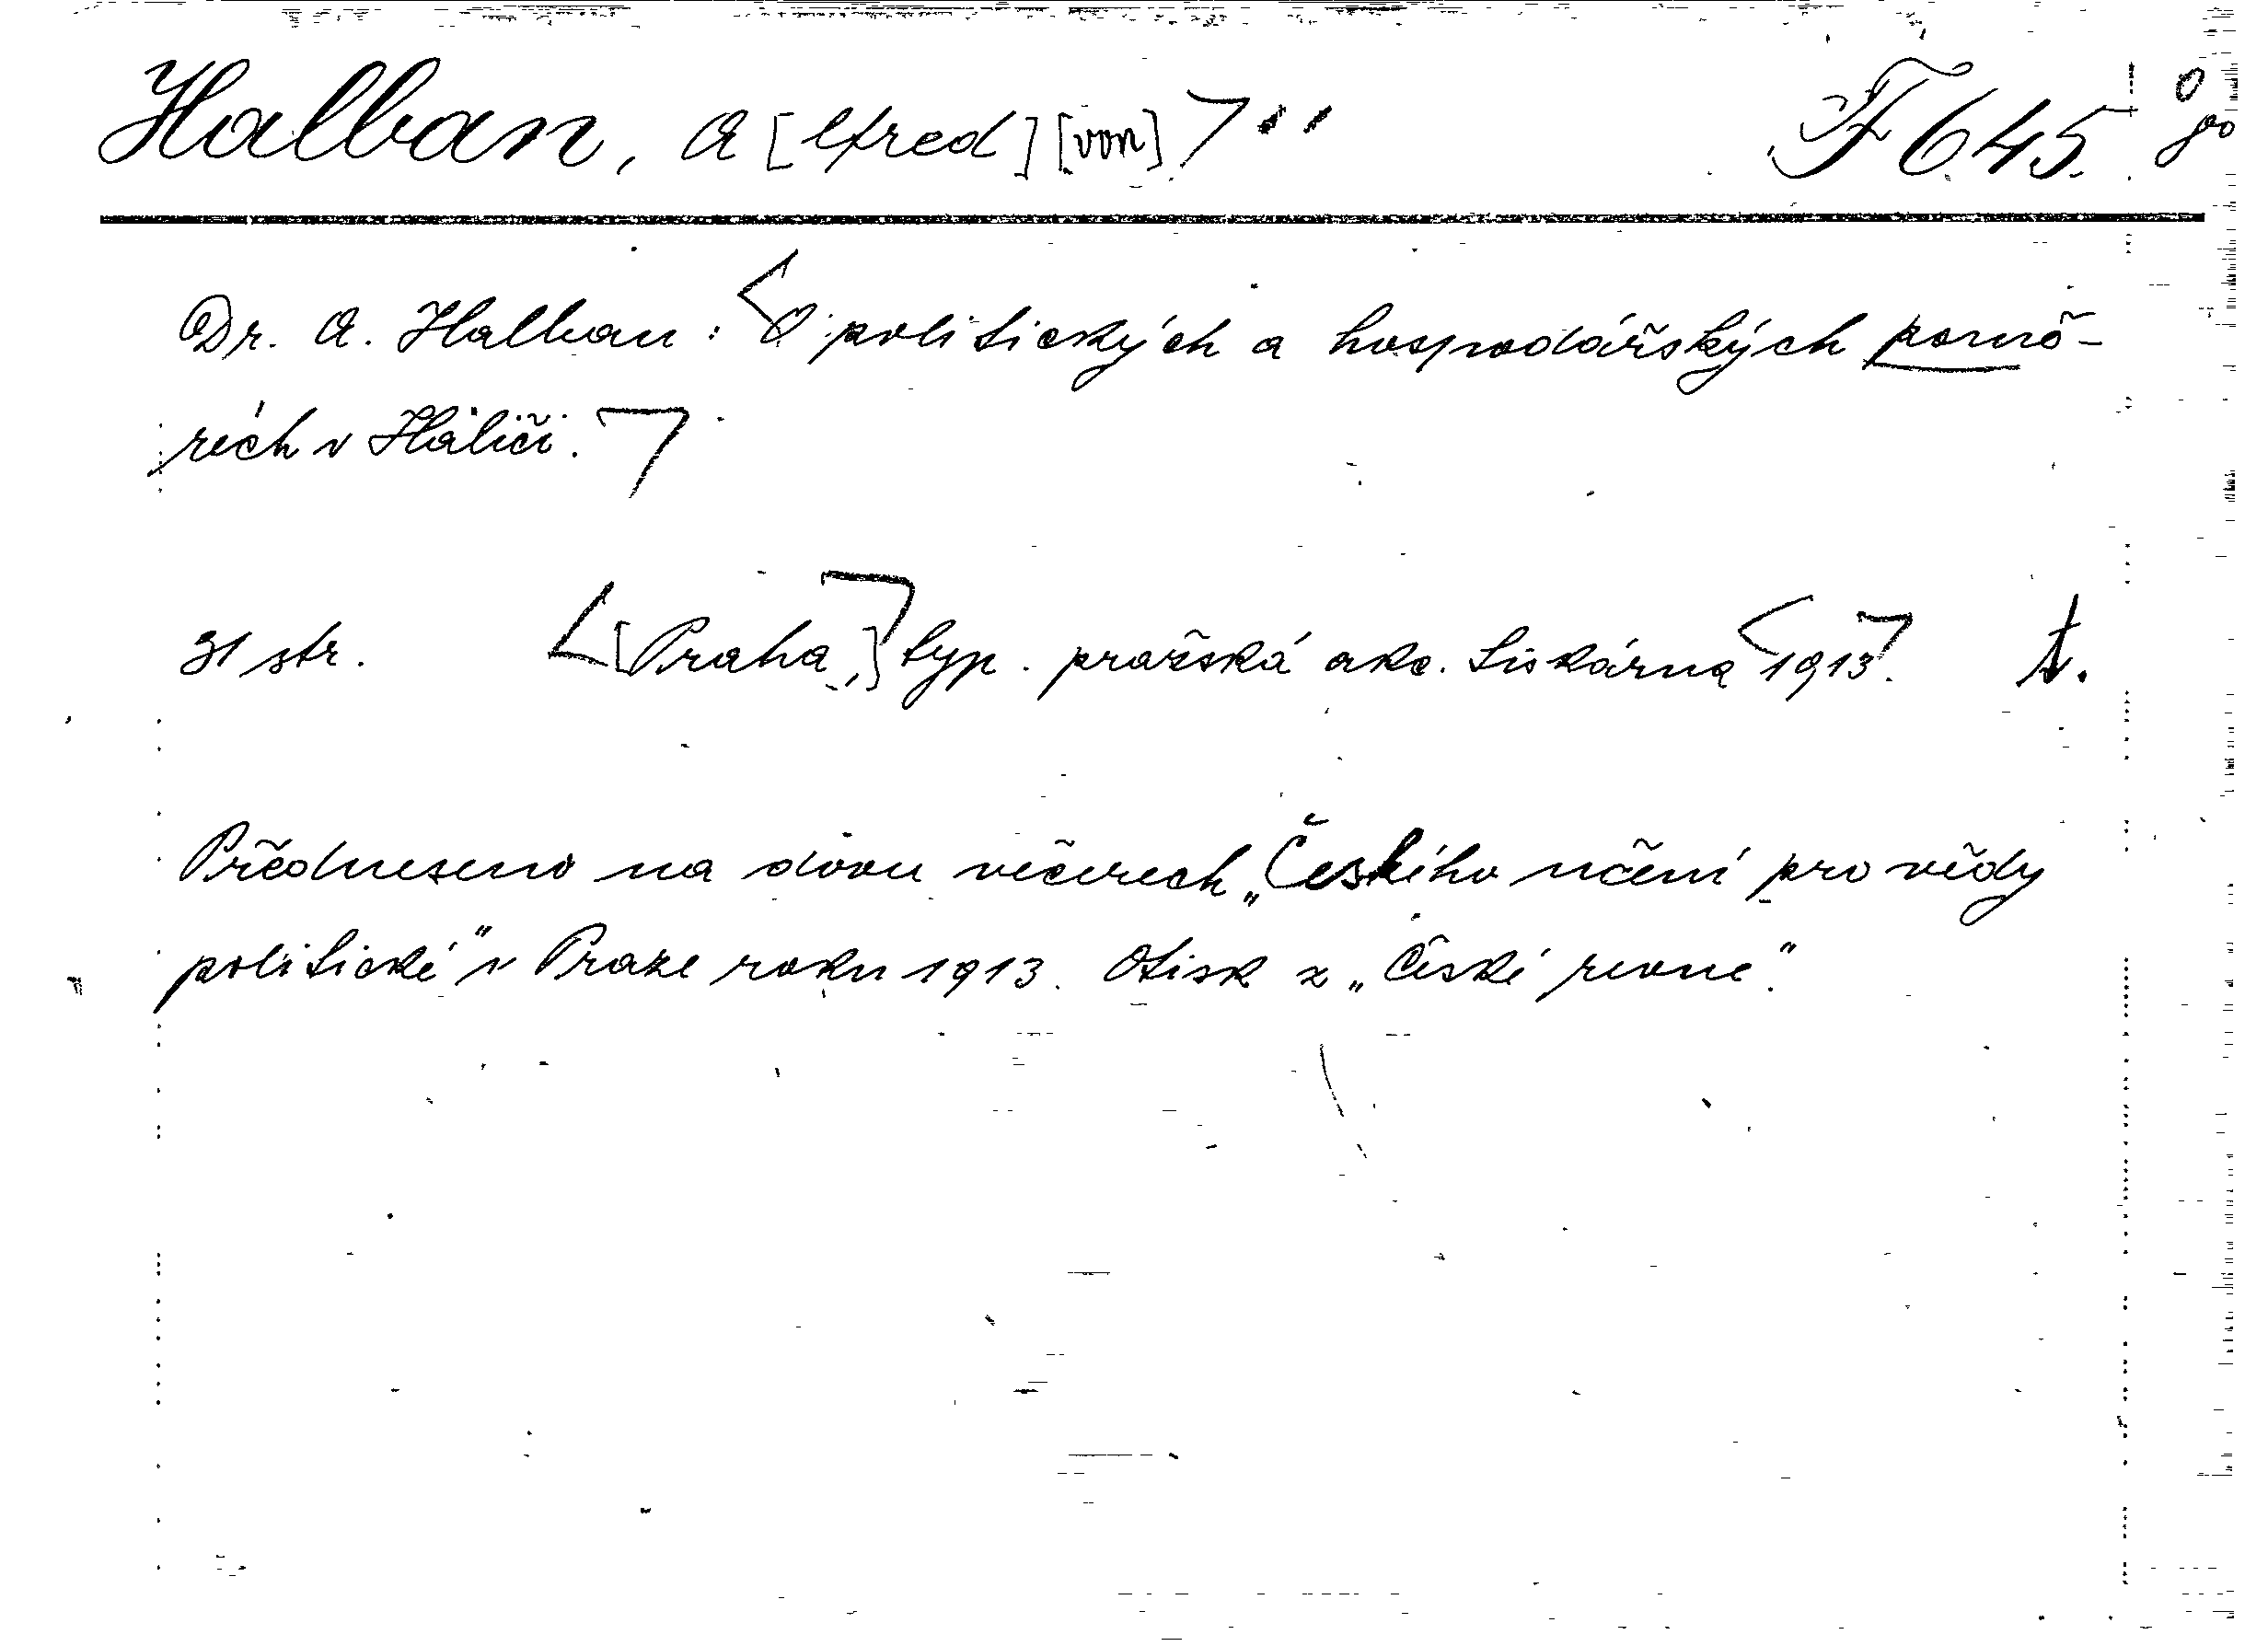 Halban, A[lfred] [von] F 645
Dr. A. Halban: O politických a hospodářských pomě-
rech v Haliči.
31 str. [Praha,] typ. pražská akc. tiskárna 1913. t.
Předneseno na dvou večerech „Českého učení pro vědy
politické" v Praze roku 1913. Otisk z „České revue".